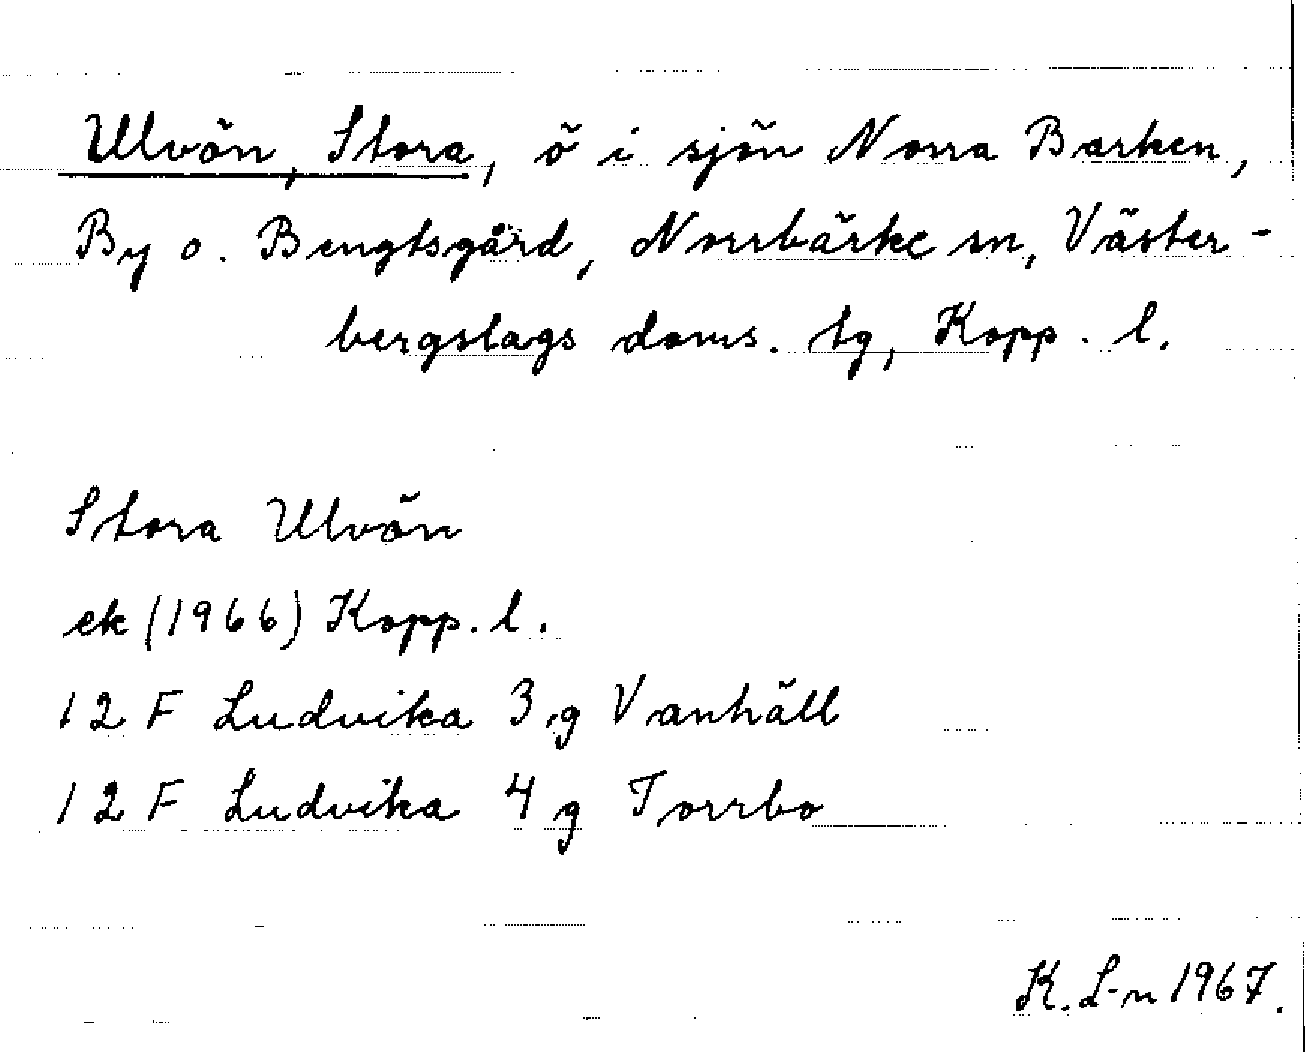 Ulvön, Stora, ö i sjön Norra Barken,
By o. Bengtsgård, Norrbärke sn, Väster-
bergslags doms. tg, Kopp. l.
Stora Ulvön
ek (1966) Kopp. l.
12 F Ludvika 3 g Vanhäll
12 F Ludvika 4 g Torrbo
K. L-n 1967.